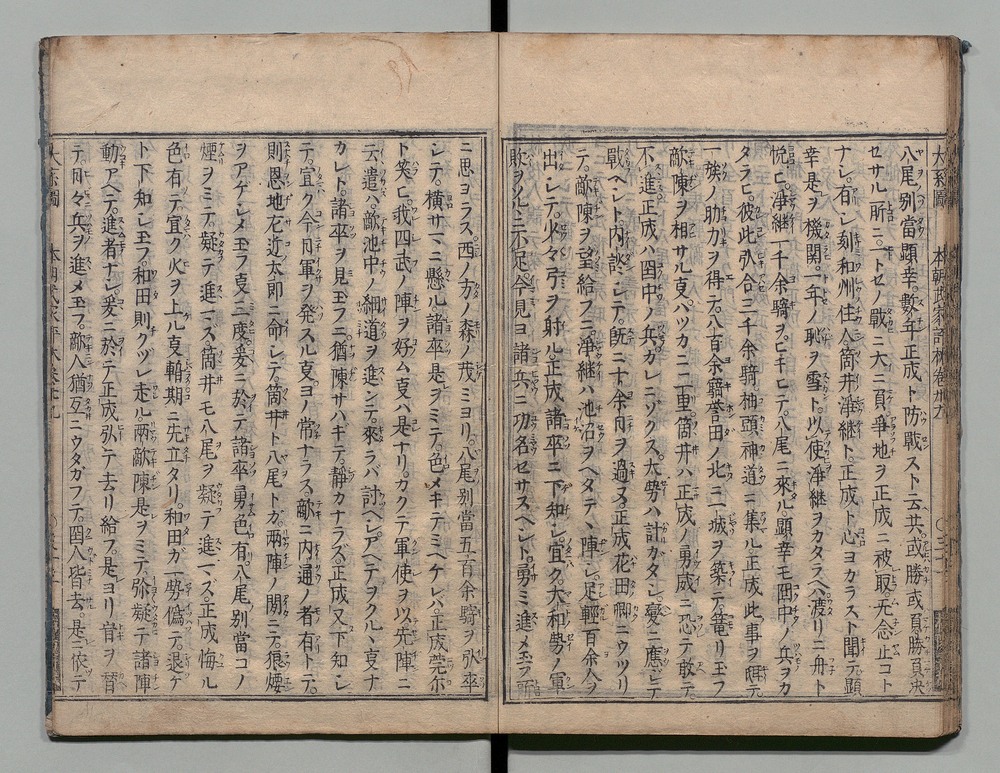 八尾ノ別當顕幸。數年正成ト防戰スト云共。或勝或負。勝負決
セサル所ニ。一トセノ戰ニ大ニ負。爭地ヲ正成ニ被取。无念止コト
ナシ。有シ刻。和州ノ住人筒井浄継ト。正成ト心ヨカラスト聞テ。顕
幸是ヲ機関。一年ノ恥ヲ雪ト。以使浄継ヲカタラヘハ。渡リニ舟ト
悦ヒ。浄継一千余騎ヲヒキヒテ。八尾ニ來ル。顕幸モ國中ノ兵ヲカ
タラヒ。彼此弐合三千余騎。神道ニ集ル。正成此事ヲ
一強ノ助力ヲ得テ。八百余騎誉田ノ北ニ二城ヲ築テ。篭リ玉フ
敵陳ヲ相サル叓ハツカニ二重。筒井ハ正成ノ勇威ニ恐テ敢テ
不進。正成ハ國中ノ兵ガレニゾクス。大勢ハ計カタシ。憂ニ應シテ
戰ヘシト内談シテ。既ニ十余日ヲ過ス。正成花田ニウツリ
テ。敵陳ヲ望給フニ。浄継ハ池沼ヲヘタテヽ陣シ。足輕百余人ヲ
出シテ。火々引ヲ射ル。正成諸卒ニ下知シ。宜ク。大和勢ノ軍
敗ヲソルニ不足。今見ヨ諸兵ニ功名セサスヘシト勇ミ進メ玉フ所
ニ思ヨラス西ノ方ノ森ノ茂ミヨリ。八尾別當五百余騎ヲ引率
シテ。横サマニ懸ル。諸卒是ヲミテ。色メキテミヘケレバ。正成莞尓
ト笑ヒ。我四武ノ陣ヲ好ム叓ハ是ナリ。カクテ軍使ヲ以先陣ニ
云遣ハ。敵池中ノ細道ヲ進ンテ。來ラバ討ヘシ。アヘテヲクルヽ叓ナ
カレト。諸卒ヲ見玉フニ猶陳サハキテ静カナラズ。正成又下知シ
テ。宜ク今日軍ヲ発スル叓ヨノ常ナラス。敵ニ内通ノ者有トテ。
則恩地左近太郎ニ命シテ。筒井ト八尾トガ。兩陣ノ間ニテ。狼煙
ヲアゲシメ玉フ叓二三度。爰ニ於テ諸卒勇色有。八尾別當コノ
煙ヲミテ。疑テ進マズ。筒井モ八尾ヲ疑テ進マズ。正成悔ル
色有テ宜ク火ヲ上ル叓期ニ先立タリ。和田ガ一勢偽テ。退ケ
ト下知シ玉フ。和田則クヅレ走ル。兩敵陳是ヲミテ。弥疑テ諸陣
動アヘテ。進者ナシ。爰ニ於テ正成引テ去リ給フ。是ヨリ旨ヲ替
テ。日々兵ヲ進メ玉フ。敵人猶互ニウタガフテ。國人皆去。是ニ依テ